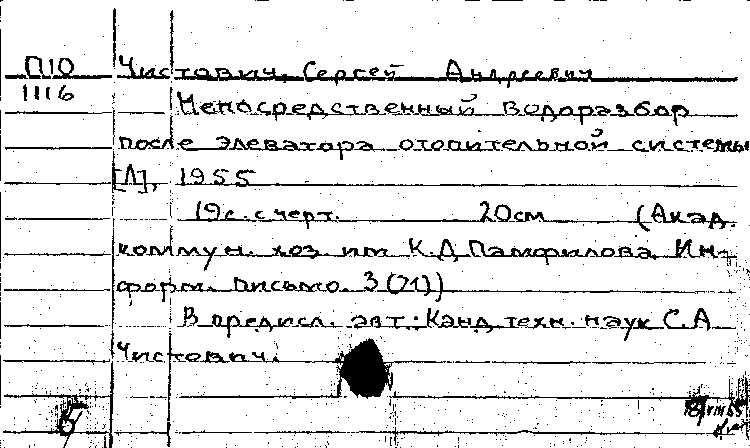 П10 Чистович, Сергей Андреевич
1116 Непосредственный водоразбор
после элеватора отопительной системы
[Л], 1955
19с. с черт. 20см (Акад.
коммун. хоз. им К.Д Памфилова. Ин-
форм. письмо. 3 (71))
В предисл. авт.: Канд. техн. наук С.А
Чистович.
Б